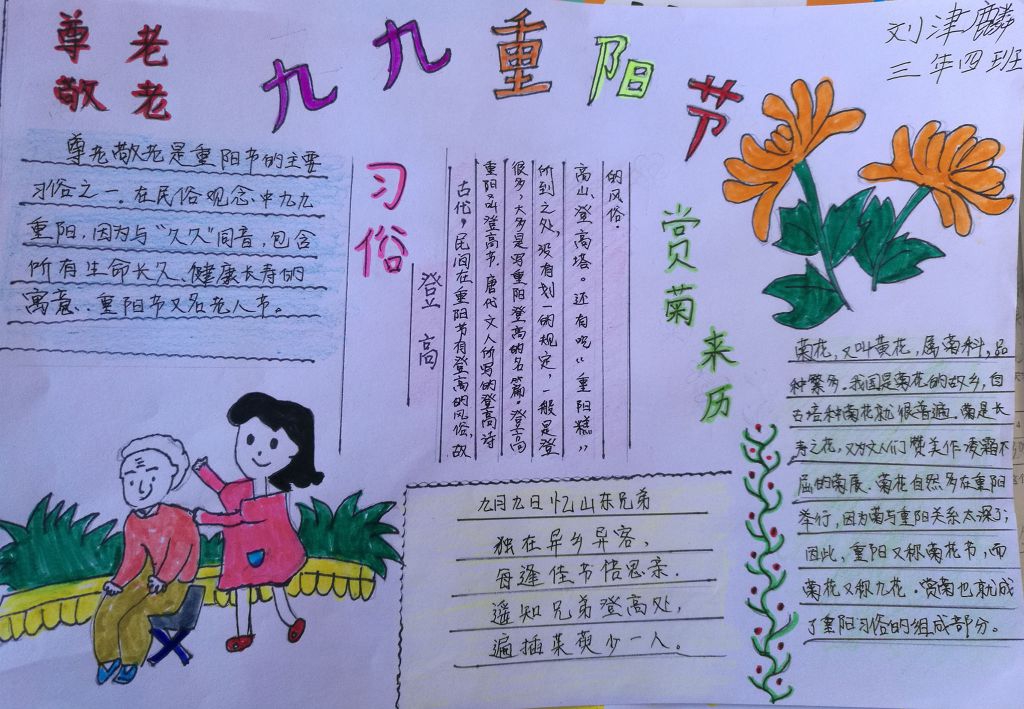 尊老
敬老
九九重阳节
刘津麟
三年四班
尊老敬老是重阳节的主要
习俗之一。在民俗观念中九九
重阳,因为与“久久”同音,包含
所有生命长久、健康长寿的
寓意..重阳节又名老人节。
习俗
登高
古代,民间在重阳节有登高的风俗,故
重阳叫登高节。唐代文人所写的登高诗
很多,大多是写重阳登高的名篇。登高
所到之处,没有划一的规定,一般是登
高山、登高塔。还有吃“重阳糕”
的风俗.
赏菊来历
菊花,又叫黄花,属菊科,品
种繁多.我国是菊花的故乡,自
古培种菊花就很普遍.菊是长
寿之花,又为文人们赞美作凌霜不
屈的菊展.菊花自然多在重阳
举行,因为菊与重阳关系太深了;
因此,重阳又称菊花节,而
菊花又称九花.赏菊也就成
了重阳习俗的组成部分.
九月九日忆山东兄弟
独在异乡异客,
每逢佳节倍思亲.
遥知兄弟登高处,
遍插茱萸少一人。